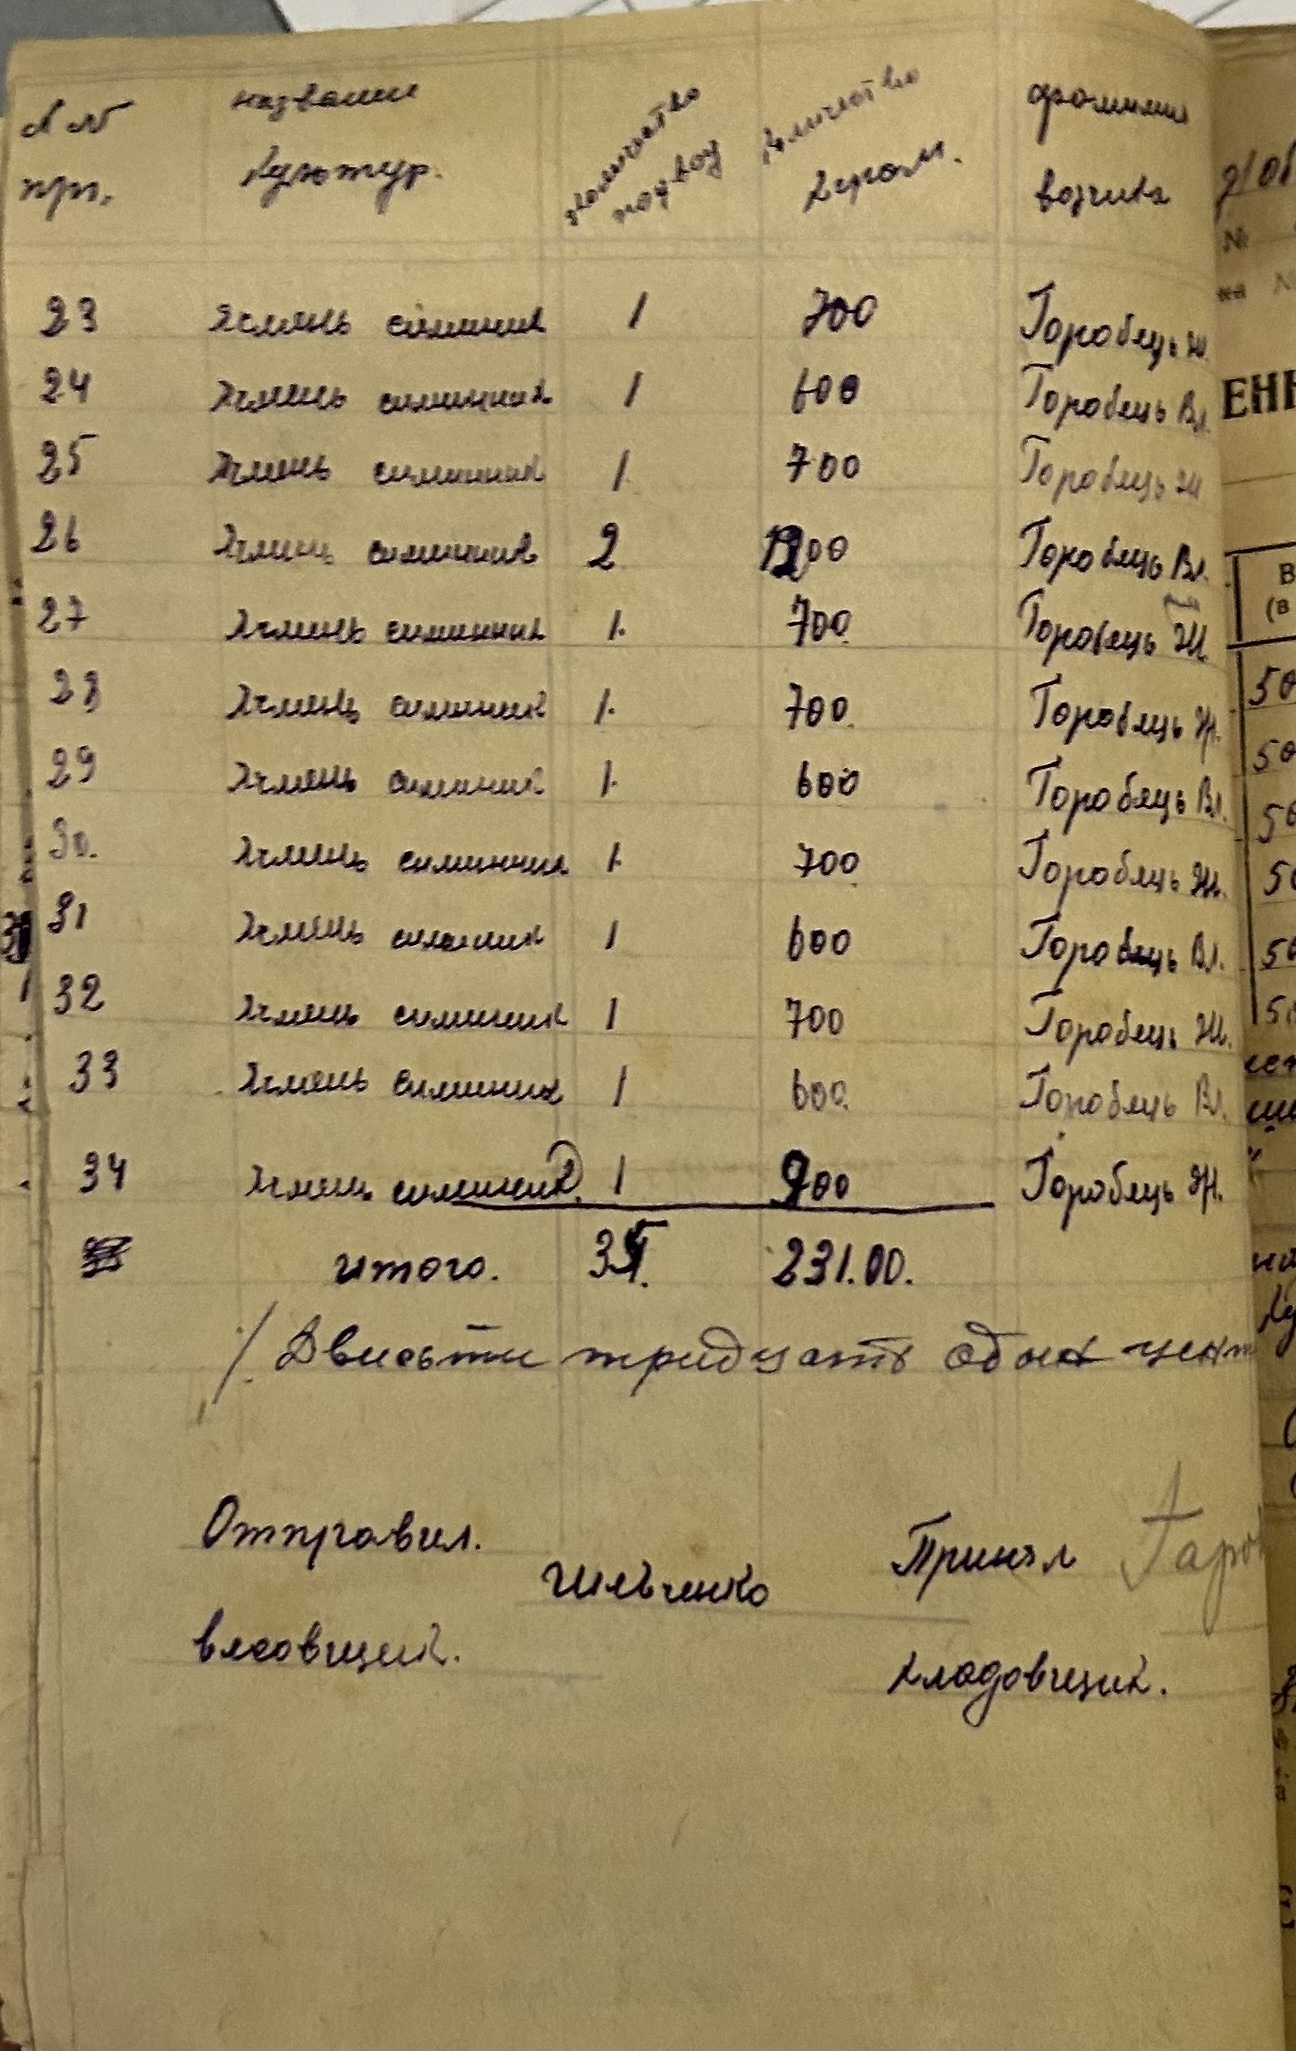 №№ пп. название культур. количество подвод количество килогр. фамилия возчика
23 Ячмень симинник 1 700 Горобець Ж.
24 Ячмень симинник 1 600 Горобець Вл.
25 Ячмень симинник 1 700 Горобець Ж.
26 Ячмень симинник 2 1200 Горобець Вл.
27 Ячмень симинник 1. 700. Горобець Ж.
28 Ячмень симиник 1. 700. Горобець Ж.
29 Ячмень симиник 1. 600 Горобець Вл.
30. Ячмень симинник 1. 700 Горобець Ж.
31 Ячмень симиник 1 600 Горобець Вл.
32 Ячмень симиник 1 700 Горобець Ж.
33 Ячмень симиник 1 600. Горобець Вл.
34 Ячмень симиник. 1 900 Горобець Ж.
итого. 231.00.
/. Двисьти тридцать один цент
Отправил. Ильченко Принял
весовщик. кладовщик.